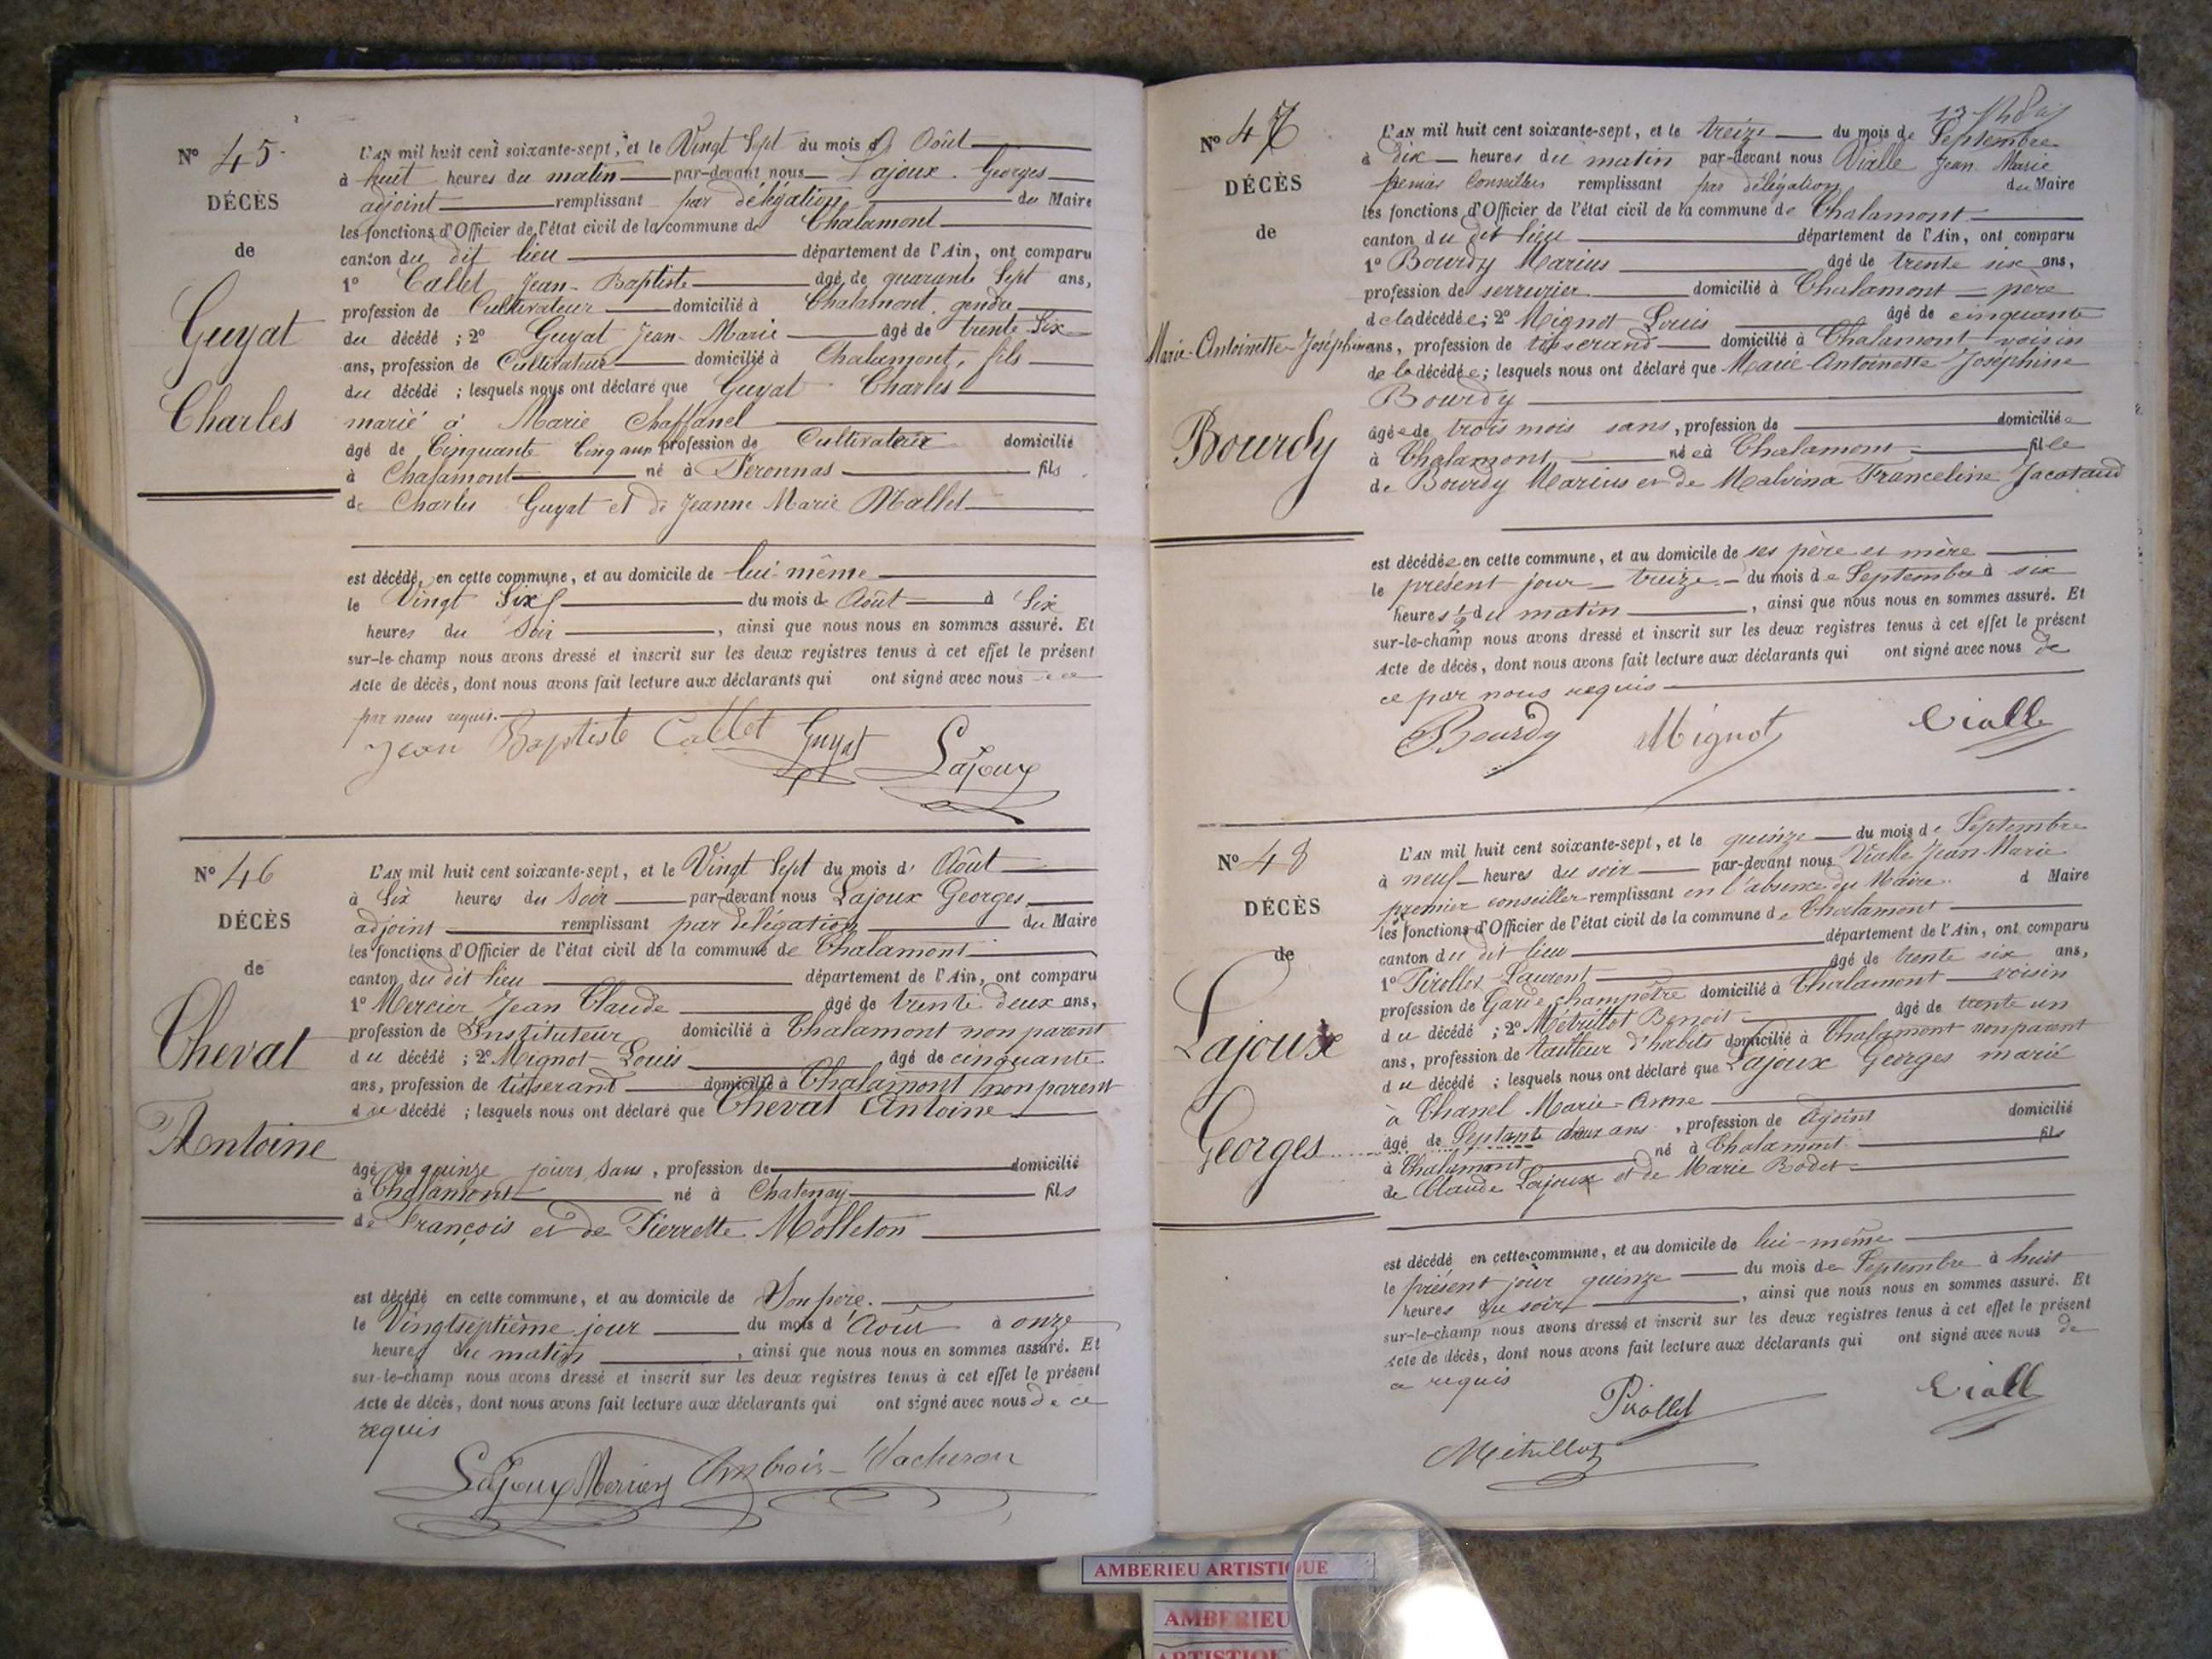 N° 45
DÉCÈS
de
Guyat
Charles
L'AN mil huit cent soixante-sept, et le Vingt Sept du mois d' Août
à huit heures du matin par-devant nous Lajoux Georges
adjoint remplissant par délégation du Maire
les fonctions d'Officier de l'état civil de la commune de Chalamont
canton du dit lieu département de l'Ain, ont comparu
1° Callet Jean-Baptiste âgé de quarante Sept ans,
profession de Cultivateur domicilié à Chalamont gendre
du décédé ; 2° Guyat Jean-Marie âgé de trente Six
ans, profession de Cultivateur domicilié à Chalamont, fils
du décédé ; lesquels nous ont déclaré que Guyat Charles
marié à Marie Chaffanel
âgé de Cinquante Cinq ans profession de Cultivateur domicilié
à Chalamont né à Peronnas fils
de Charles Guyat et de Jeanne Marie Mallet
est décédé en cette commune, et au domicile de lui-même
le Vingt Six du mois d Août à Six
heures du Soir , ainsi que nous nous en sommes assuré. Et
sur-le-champ nous avons dressé et inscrit sur les deux registres tenus à cet effet le présent
Acte de décès, dont nous avons fait lecture aux déclarants qui ont signé avec nous de ce
par nous requis.
Jean Baptiste Callet Guyat Lajoux
N° 46
DÉCÈS
de
Chevat
Antoine
L'AN mil huit cent soixante-sept, et le Vingt Sept du mois d' Août
à Six heures du Soir par-devant nous Lajoux Georges
adjoint remplissant par délégation du Maire
les fonctions d'Officier de l'état civil de la commune de Chalamont
canton du dit lieu département de l'Ain, ont comparu
1° Mercier Jean Claude âgé de trente deux ans,
profession de Instituteur domicilié à Chalamont non parent
du décédé ; 2° Mignot Louis âgé de cinquante
ans, profession de tisserand domicilié à Chalamont non parent
du décédé ; lesquels nous ont déclaré que Chevat Antoine
âgé de quinze jours sans, profession de domicilié
à Chalamont né à Chatenay fils
de François et de Pierrette Molleton
est décédé en cette commune, et au domicile de Son père.
le Vingtseptième jour du mois d'Août à onze
heures du matin , ainsi que nous nous en sommes assuré. Et
sur-le-champ nous avons dressé et inscrit sur les deux registres tenus à cet effet le présent
Acte de décès, dont nous avons fait lecture aux déclarants qui ont signé avec nous de ce
requis
Lajoux Mercier Ambrois Vacheron
N° 47
DÉCÈS
de
Marie-Antoinette-Joséphine
Bourdy
L'AN mil huit cent soixante-sept, et le treize du mois de Septembre
à dix heures du matin par-devant nous Vialle Jean Marie
premier Conseiller remplissant par délégation du Maire
les fonctions d'Officier de l'état civil de la commune de Chalamont
canton du dit lieu département de l'Ain, ont comparu
1° Bourdy Marius âgé de trente six ans,
profession de serrurier domicilié à Chalamont père
de la décédée ; 2° Mignot Louis âgé de cinquante
ans, profession de tisserand domicilié à Chalamont voisin
de la décédée ; lesquels nous ont déclaré que Marie-Antoinette Joséphine
Bourdy
âgée de trois mois sans, profession de domiciliée
à Chalamont née à Chalamont fille
de Bourdy Marius et de Malvina Franceline Jacotaud
est décédée en cette commune, et au domicile de ses père et mère
le présent jour treize du mois de Septembre à six
heures ½ du matin , ainsi que nous nous en sommes assuré. Et
sur-le-champ nous avons dressé et inscrit sur les deux registres tenus à cet effet le présent
Acte de décès, dont nous avons fait lecture aux déclarants qui ont signé avec nous de
ce par nous requis
Bourdy Mignot Vialle
N° 48
DÉCÈS
de
Lajoux
Georges
L'AN mil huit cent soixante-sept, et le quinze du mois de Septembre
à neuf heures du soir par-devant nous Vialle Jean Marie
premier conseiller remplissant en l'absence du Maire. d Maire
les fonctions d'Officier de l'état civil de la commune de Chalamont
canton du dit lieu département de l'Ain, ont comparu
1° Pirollet Laurent âgé de trente six ans,
profession de Garde champêtre domicilié à Chalamont voisin
du décédé ; 2° Métrillot Benoit âgé de trente un
ans, profession de tailleur d'habits domicilié à Chalamont non parent
du décédé ; lesquels nous ont déclaré que Lajoux Georges marié
à Chanel Marie-Anne
âgé de Septante deux ans , profession de Adjoint domicilié
à Chalamont né à Chalamont fils
de Claude Lajoux et de Marie Bodet
est décédé en cette commune, et au domicile de lui-même
le présent jour quinze du mois de Septembre à huit
heures du soir , ainsi que nous nous en sommes assuré. Et
sur-le-champ nous avons dressé et inscrit sur les deux registres tenus à cet effet le présent
Acte de décès, dont nous avons fait lecture aux déclarants qui ont signé avec nous de
ce requis
Pirollet Viall
Métrillot
AMBERIEU ARTISTIQUE
AMBERIEU
ARTISTIQUE